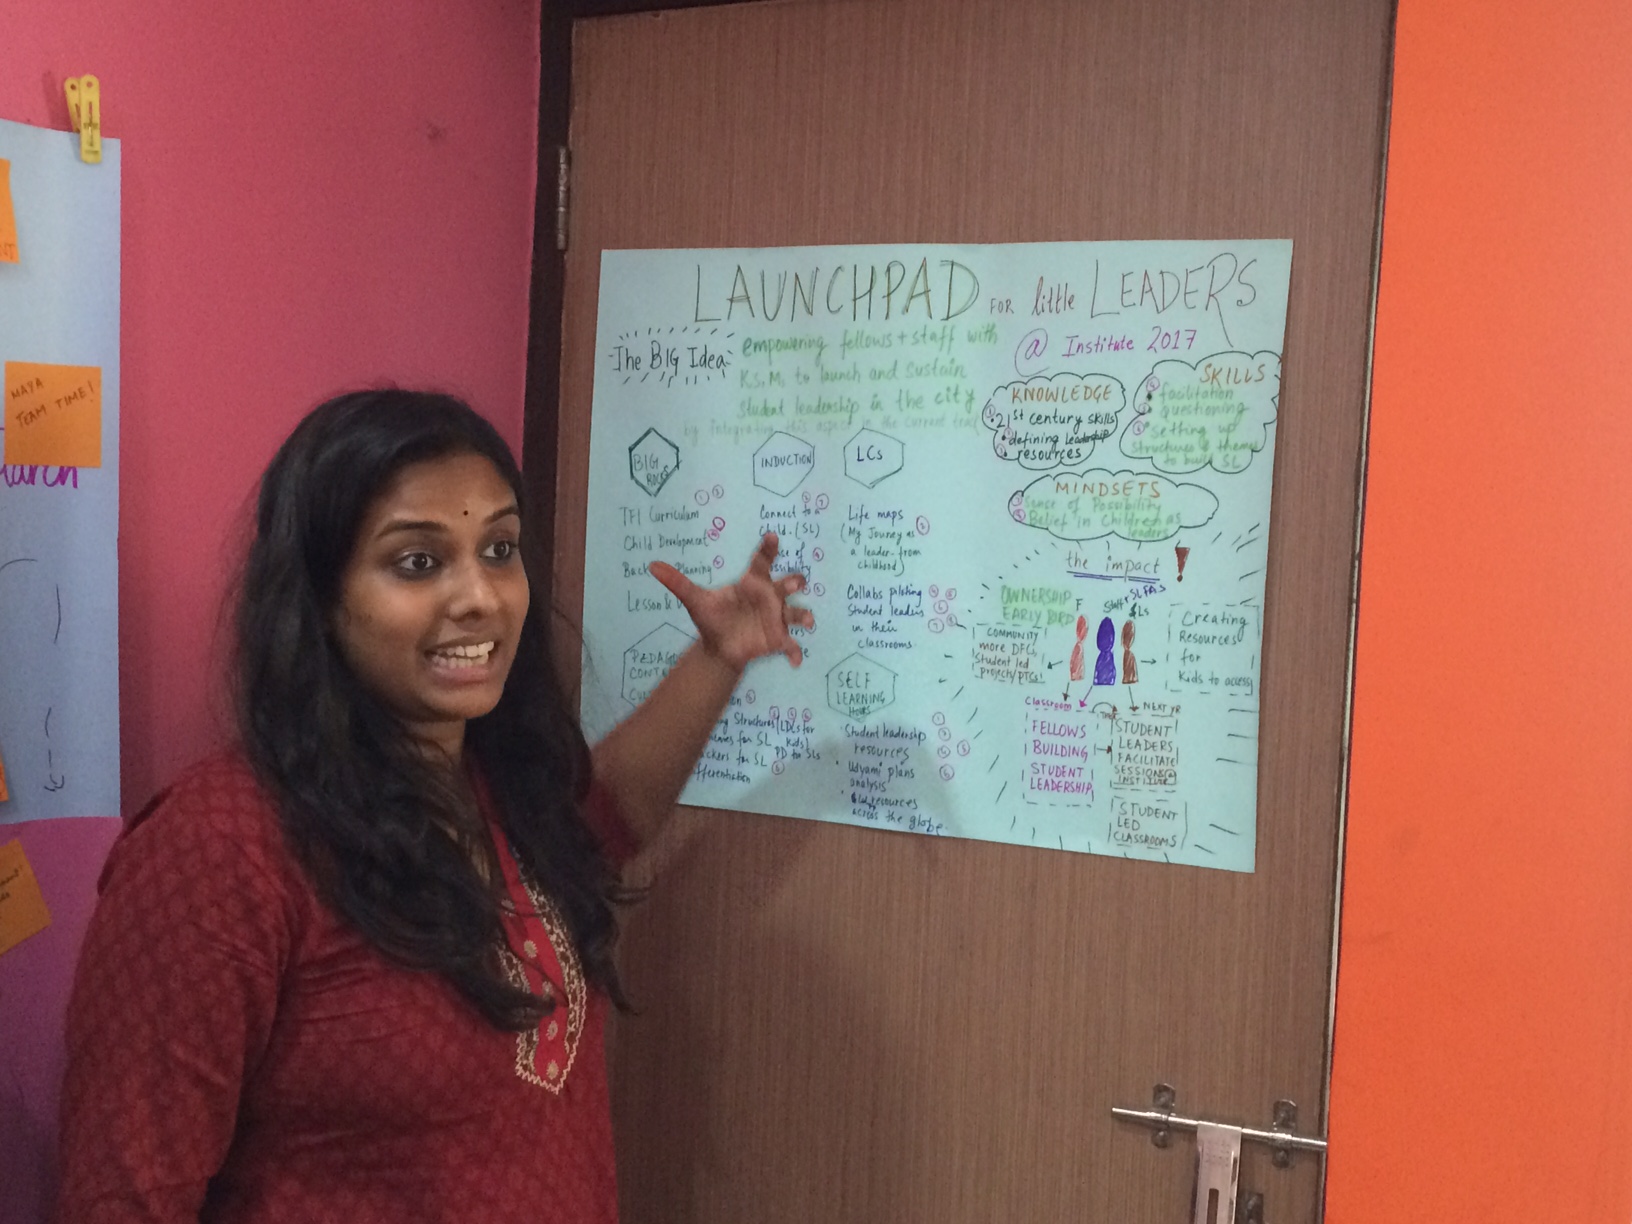 LAUNCHPAD FOR little LEADERS
@ Institute 2017
The BIG Idea
empowering fellows + staff with
K.S.M. to launch and sustain
student leadership in the city
by integrating this aspect in the current
KNOWLEDGE
21st century skills
defining leadership
resources
SKILLS
facilitation
questioning
setting up
structures & themes
to build SL
MINDSETS
Sense of Possibility
Belief in Children as
leaders
BIG
ROCKS
TFI Curriculum
Child Development
Planning
Lesson &
INDUCTION
Connect to a
Child. (SL)
LCs
Life maps
(My Journey as
a leader-from
childhood)
Collabs piloting
Student leaders
in their
classrooms
SELF
LEARNING
HOURS
Student leadership
resources
Udyami plans
analysis
resources
across the globe
Structures
for SL
for SL
(LDCs for
kids)
PD for SLs
the impact !
OWNERSHIP
EARLY BIRD
F
Staff
SLs
COMMUNITY
more DFC,
Student led
projects/PTCs
Creating
Resources
for
Kids to access
Classroom
FELLOWS
BUILDING
STUDENT
LEADERSHIP
NEXT YR
STUDENT
LEADERS
FACILITATE
SESSIONS @
INSTITUTE
STUDENT
LED
CLASSROOMS
MAYA
TEAM TIME!